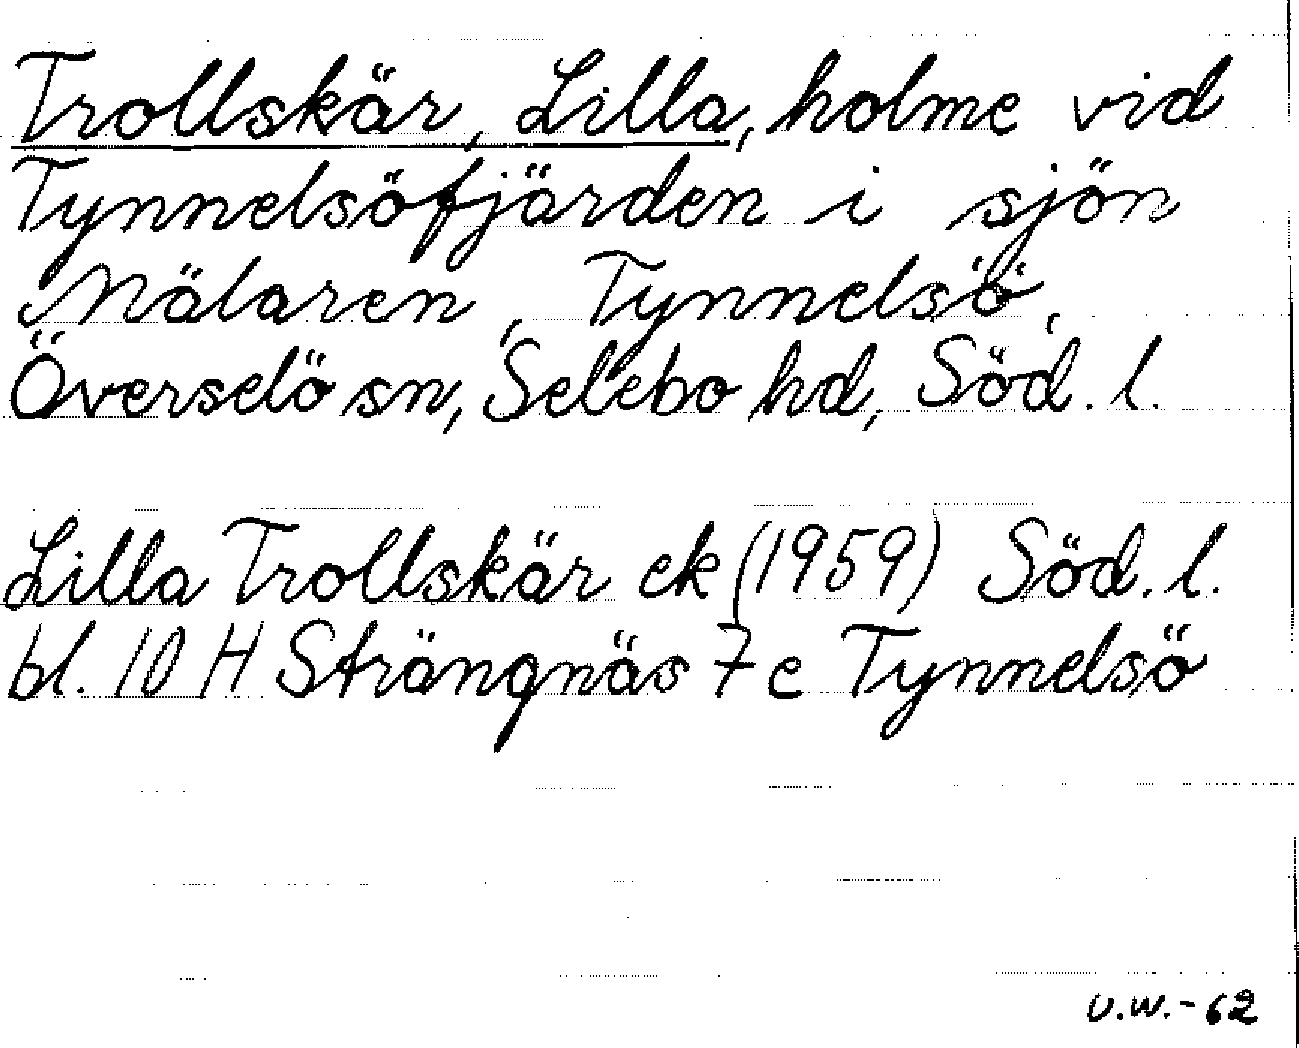 Trollskär, Lilla, holme vid
Tynnelsöfjärden i sjön
Mälaren, Tynnelsö,
Överselö sn, Selebo hd, Söd. l.
Lilla Trollskär ek (1959) Söd. l.
bl. 10 H Strängnäs 7 c Tynnelsö
U.W.-62